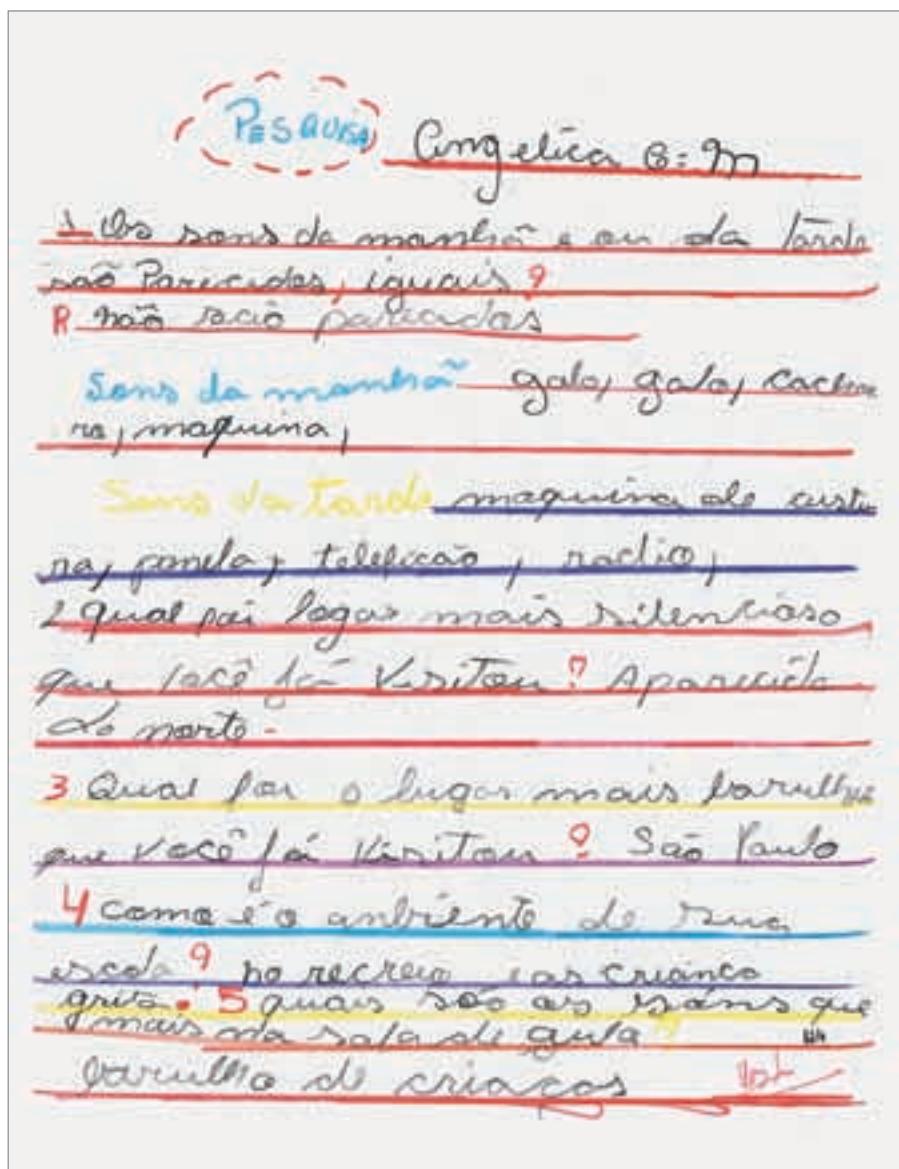 PESQUISA Angelica G: M
1 Os sons da manhã e ou da tarde
são Parecidos, iguais?
R não são parecidos
Sons da manhã galo, galo, cachor
ro, maquina,
Sons da tarde maquina de custu
ra, panela, telefição, radio,
2 qual foi logar mais silencioso
que você já Visitou? Aparecida
do norte.
3 Qual foi o lugar mais barulhe
que você já Visitou? São Paulo
4 como é o anbiente de sua
escola? no recreio as criança
grita. 5 quais são os sons que
mais na sala de aula
barulho de criaças